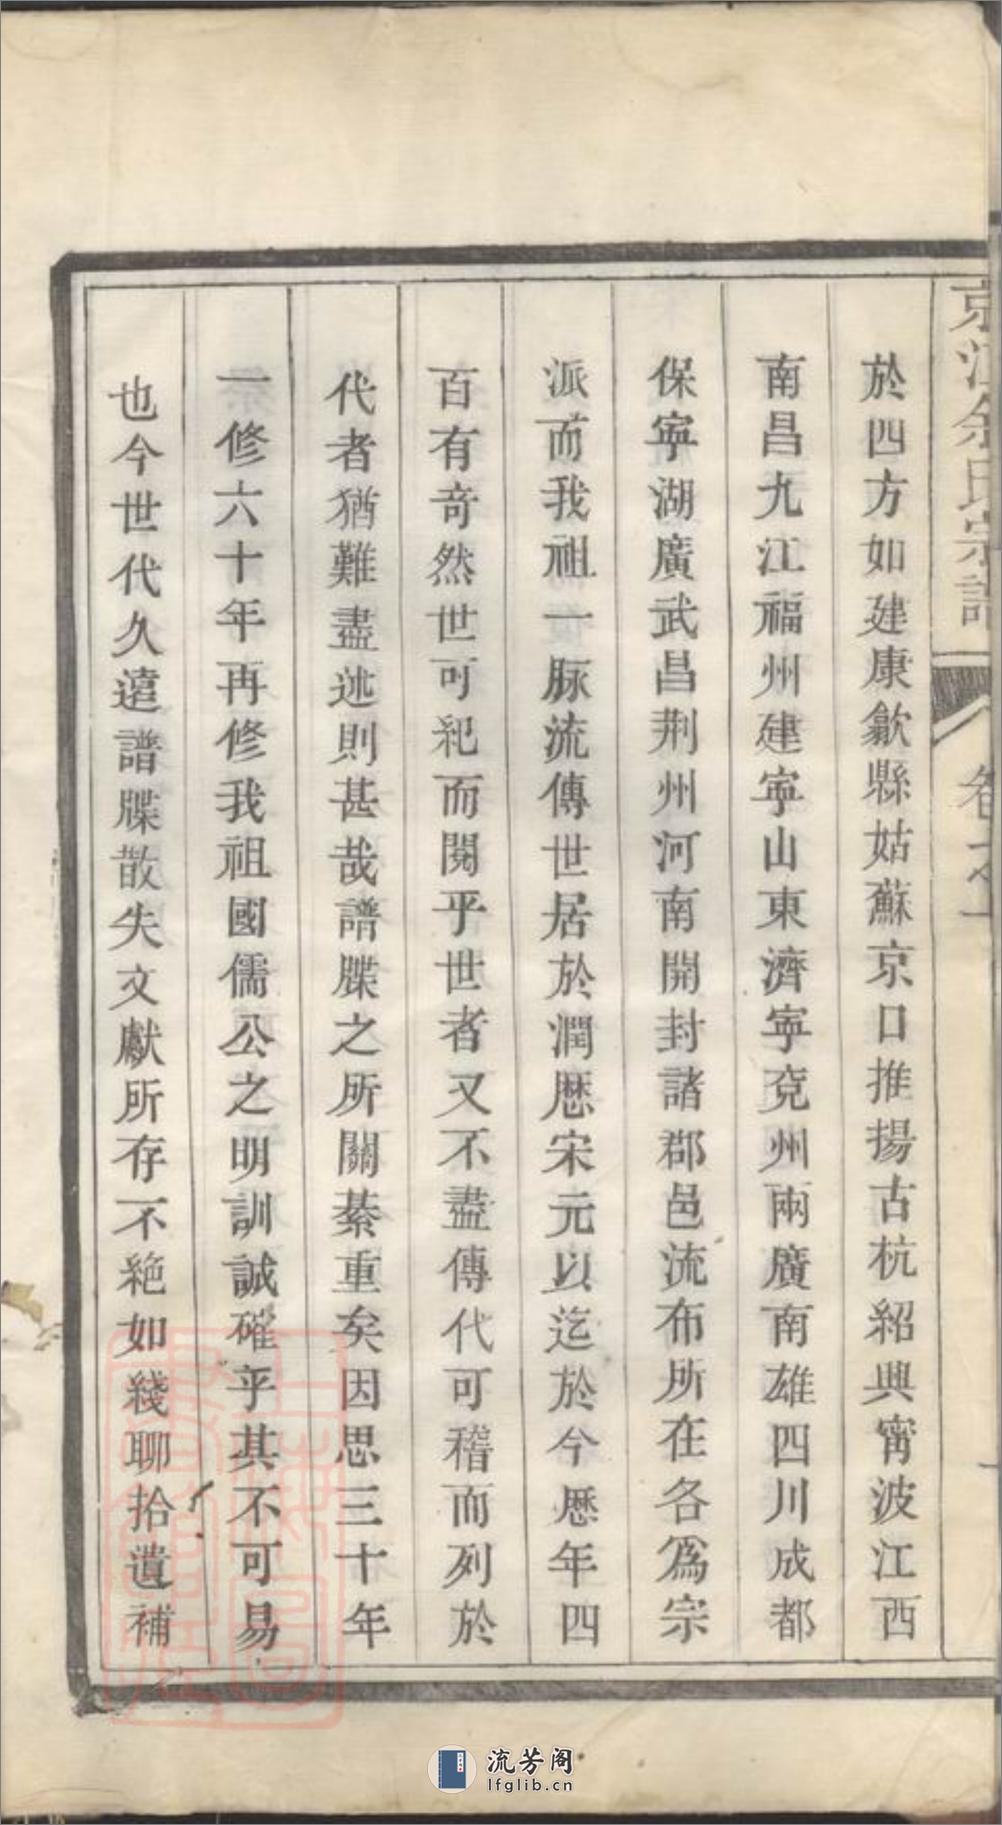 京江余氏宗譜 卷之一
於四方如建康歙縣姑蘇京口推揚古杭紹興甯波江西
南昌九江福州建寧山東濟寧兗州兩廣南雄四川成都
保寧湖廣武昌荆州河南開封諸郡邑流布所在各爲宗
派而我祖一脉流傳世居於潤歷宋元以迄於今歷年四
百有奇然世可紀而閱乎世者又不盡傳代可稽而列於
代者猶難盡述則甚哉譜牒之所關綦重矣因思三十年
一修六十年再修我祖國儒公之明訓誠確乎其不可易
也今世代久遠譜牒散失文獻所存不絶如綫聊拾遺補
流芳阁
lfglib.cn